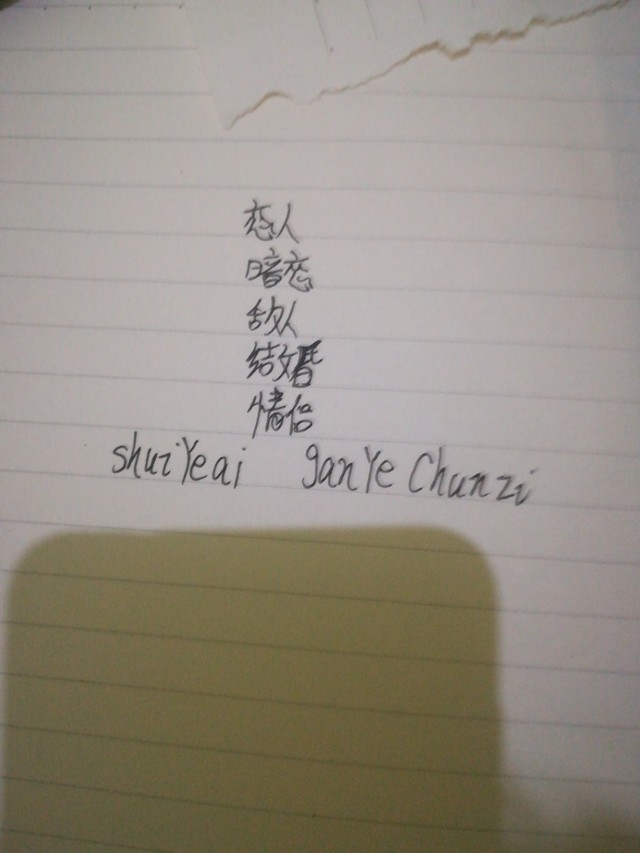 恋人
暗恋
敌人
结婚
情侣
shuiYeai ganYe Chunzi